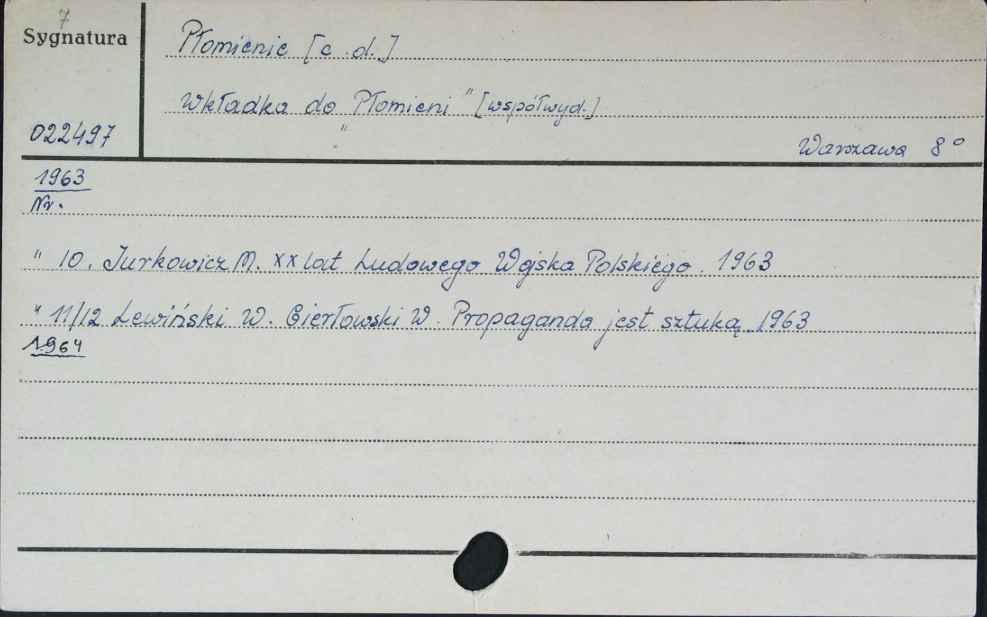 7
Sygnatura
Płomienie [c.d.]
Wkładka do "Płomieni" [współwyd.]
022497
Warszawa 8°
1963
Nr.
" 10. Jurkowicz M. XX lat Ludowego Wojska Polskiego. 1963
" 11/12 Lewiński W. Gierłowski W. Propaganda jest sztuką 1963
1964